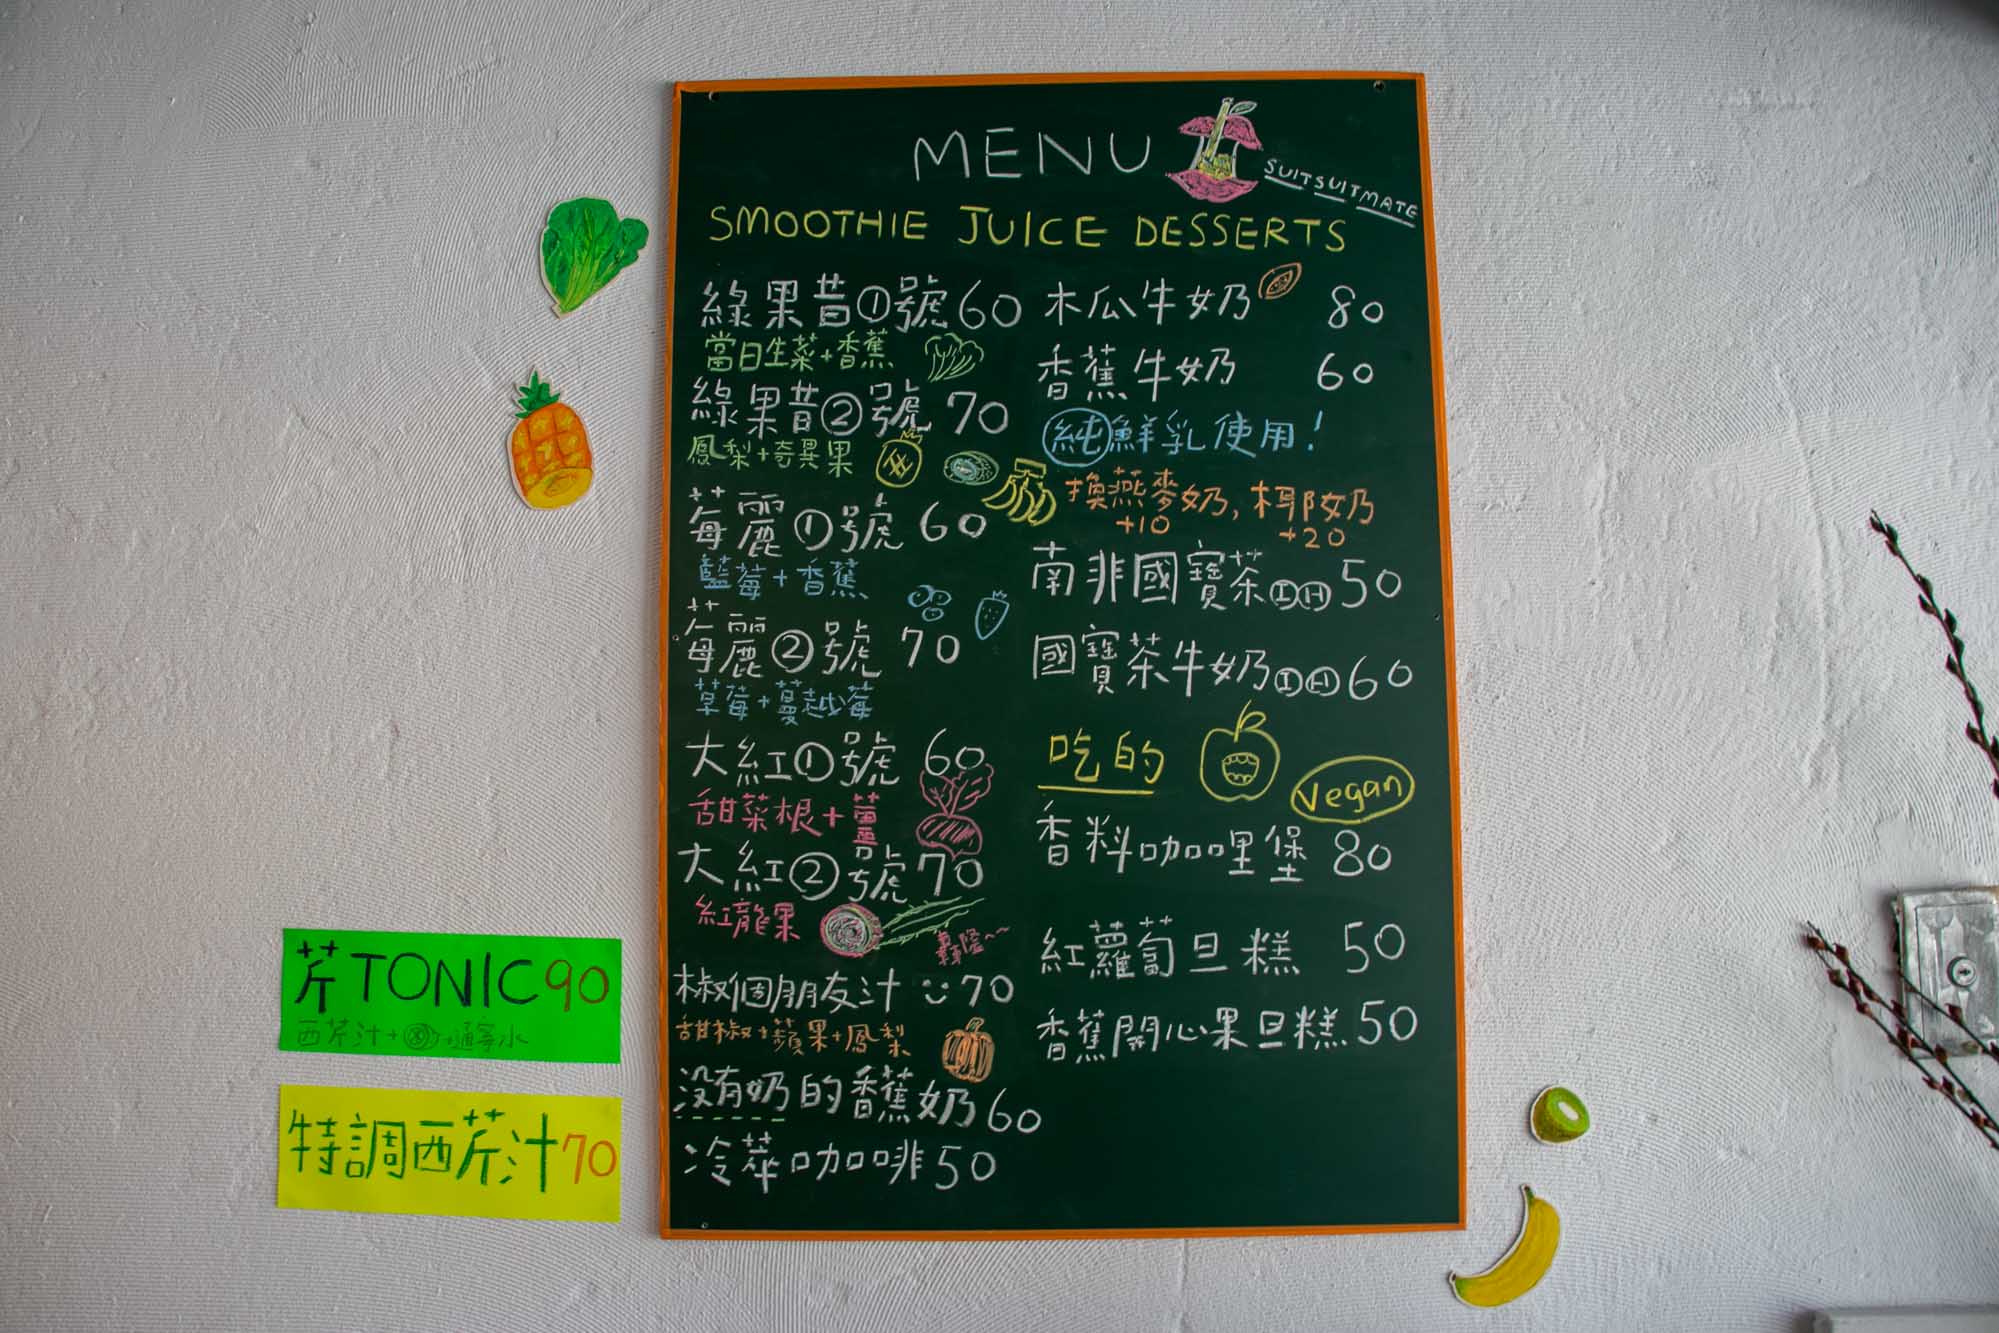 MENU
SUITSUITMATE
SMOOTHIE JUICE DESSERTS
綠果昔①號60
當日生菜+香蕉
綠果昔②號 70
鳳梨+奇異果
莓麗①號 60
藍莓+香蕉
莓麗②號 70
草莓+蔓越莓
大紅①號 60
甜菜根+薑
大紅②號70
紅龍果
椒個朋友汁 70
甜椒+蘋果+鳳梨
沒有奶的香蕉奶60
冷萃咖啡50
木瓜牛奶 80
香蕉牛奶 60
純鮮乳使用!
換燕麥奶, 椰奶
+10 +20
南非國寶茶ⒾⒽ50
國寶茶牛奶ⒾⒽ60
吃的
Vegan
香料咖哩堡 80
紅蘿蔔旦糕 50
香蕉開心果旦糕50
芹TONIC90
西芹汁+通寧水
特調西芹汁70